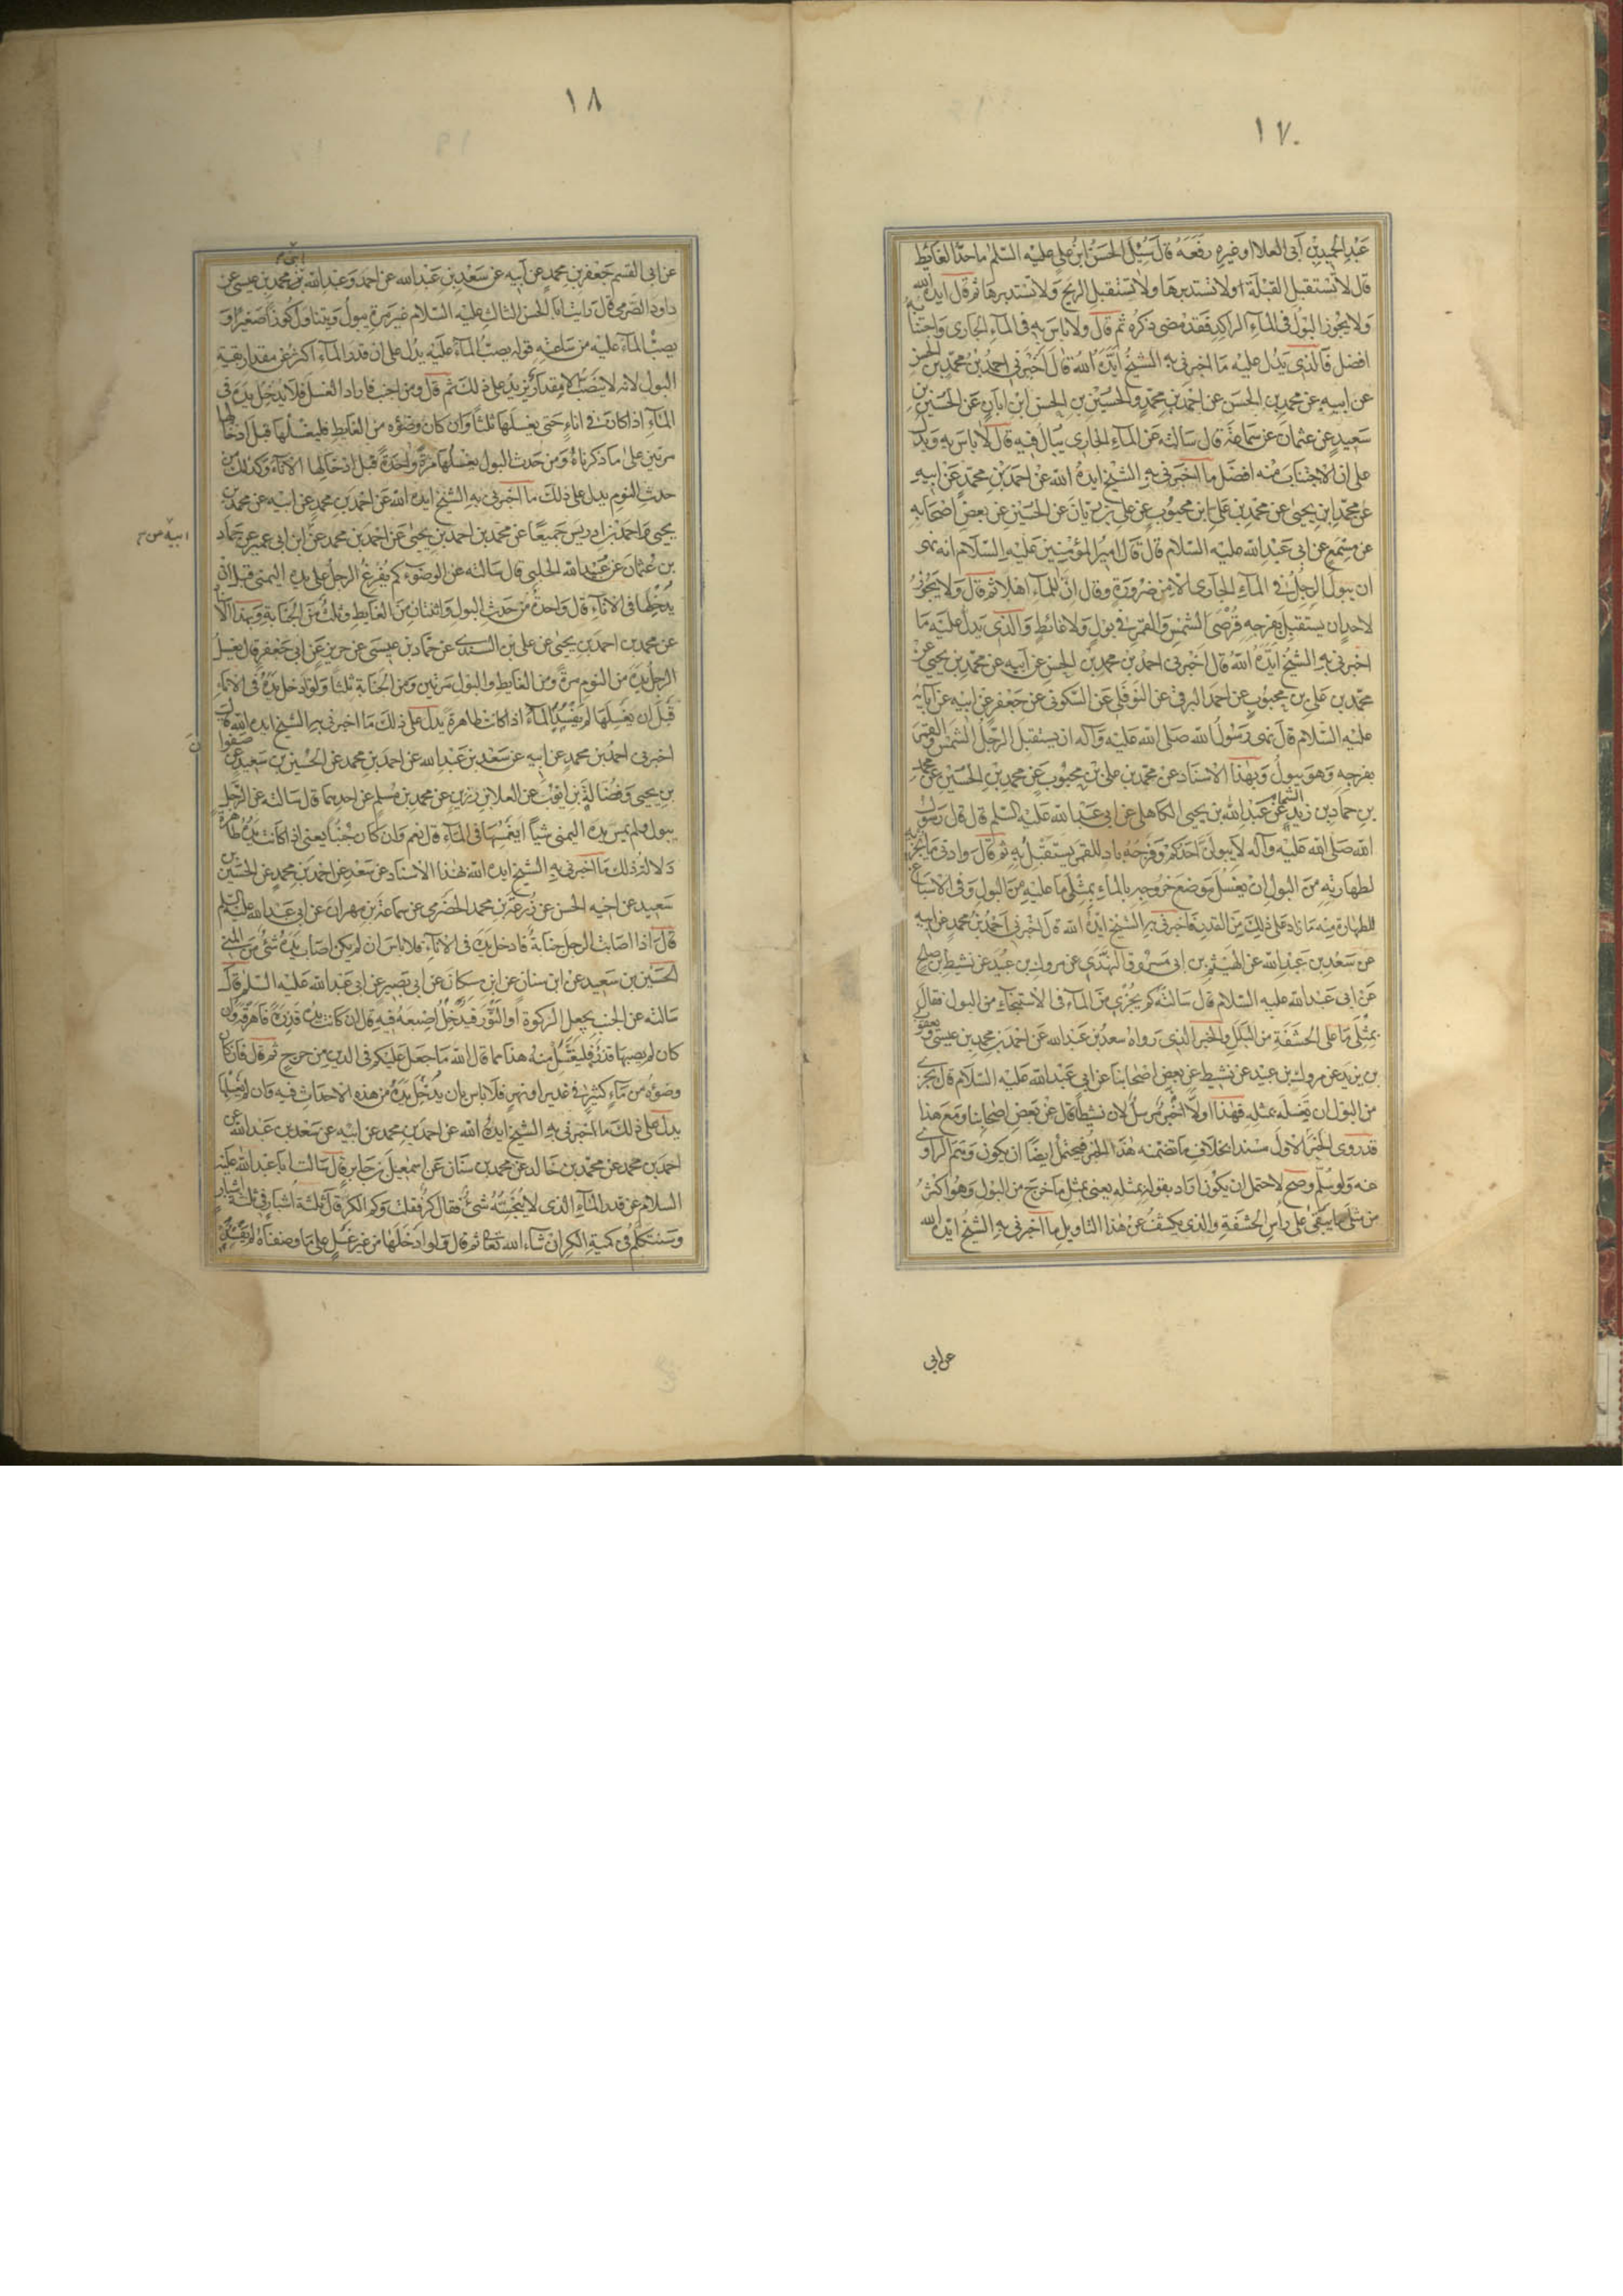 ١٧
عبد الحميد بن أبي العلا او غيره رفعه قال سُئِل الحسن ابن علي عليه السّلم ماحدّ الغائِط
قال لا تستقبل القبلة ولا تستدبرها ولا تستقبل الريح ولا تستدبرها ثم قال ايده الله
ولا يجوز البول في المآء الراكد فقد مضى ذكره ثم قال ولا باس به في المآء الجاري واجتنابه
افضل فالذي يدل عليه ما اخبرني به الشيخ ايّده الله قال اَخبرني احمد بن محمد بن الحسن
عن ابيه عن محمد بن الحسن عن احمد بن محمد والحسين بن الحسن ابن ابان عن الحسين بن
سعيد عن عثمان عن سماعة قال سالته عن المآء الجاري يبال فيه قال لا باس به ويدل
على ان الاجتناب منه افضل ما اخبرني به الشيخ ايده الله عن احمد بن محمد عن ابيه
عن محمد ابن يحيى عن محمد بن علي ابن محبوب عن علي بن ريان عن الحسين عن بعض اصحابه
عن مسمع عن ابي عبد الله عليه السلام قال قال امير المؤمنين عليه السلام انه نهى
ان يبول الرجل في المآء الجاري الا من ضرورة وقال انّ للمآء اهلا ثم قال ولا يجوز
لاحد ان يستقبل بفرجه قرصي الشمس والقمر في بول ولا غائط والذي يدل عليه ما
اخبرني به الشيخ ايّده الله قال اخبرني احمد بن محمد بن الحسن عن ابيه عن محمد بن يحيى عن
محمد بن علي بن محبوب عن احمد البرقي عن النوفلي عن السكوني عن جعفر عن ابيه عن آبائه
عليه السّلام قال نهى رسول الله صلى الله عليه وآله ان يستقبل الرّجل الشمس والقمر
بفرجه وهو يبول وبهذا الاسناد عن محمد بن علي بن محبوب عن محمد بن الحسين عن محمد
بن حماد بن زيد عن عبد الله بن يحيى الكاهلي عن ابي عبد الله عليه السّلم قال قال رسول
الله صلى الله عليه وآله لا يبولنّ احدكم وفرجه باد للقمر يستقبل به ثم قال وادنى ما يجزيه
لطهارته من البول ان يغسل موضع خروجه بالماء بمثلي ما عليه من البول وفي الاسباغ
للطهارة منه ما زاد على ذلك من القدر فاخبرني به الشيخ ايدهُ الله قال اخبرني احمد بن محمد عن ابيه
عن سعد بن عبد الله عن الهيثم بن ابي مسروق النهدي عن مروك بن عبيد عن نشيط بن صالح
عن ابي عبد الله عليه السّلام قال سالته كم يجزي من المآء في الاستنجاء من البول فقال
بمثلي ما على الحشفة من البلل والخبر الذي رواه سعد بن عبد الله عن احمد بن محمد بن عيسى ويعقوب
بن يزيد عن مروك بن عبيد عن نشيط عن بعض اصحابنا عن ابي عبد الله عليه السّلام قال يجزي
من البول ان تغسله بمثله فهذا اولا الخبر مرسل لان نشيطا قال عن بعض اصحابنا ومع هذا
قد روى الخبر الاول مسندا بخلاف ما تضمنه هذا الخبر فيحتمل ايضًا ان يكون وهم الراوي
عنه ولو سُلّم وصح لاحتمل ان يكون اراد بقوله بمثله يعني بمثل ما خرج من البول وهو اكثر
من مثلي ما يبقى على راس الحشفة والذي يكشف عن هذا التاويل ما اخبرني به الشيخ ايده الله
عن ابي
١٨
عن ابي القسم جعفر بن محمد عن ابيه عن سعد بن عبد الله عن احمد وعبد الله بن محمد بن عيسى عن
داود الصرمي قال رايت ابا الحسن الثالث عليه السّلام غير مرة يبول ويتناول كوزًا صغيرًا و
يصبّ المآء عليه من ساعته قوله يصبّ المآء عليه يدل على ان قدر المآء اكثر من مقدار بقية
البول لانه لا ينصب الا مقدار يزيد على ذلك ثم قال ومن اجنب فاراد الغسل فلا يدخل يده في
المآء اذا كان في اناء حتى يغسلها ثلثًا وان كان وضؤه من الغايط فليغسلها قبل ادخالها
مرتين على ما ذكرناه ومن حدث البول يغسلها مرة واحدة قبل ادخالها الاناء وكذلك من
حدث النوم يدل على ذلك ما اخبرني به الشيخ ايده الله عن احمد بن محمد عن ابيه عن محمد بن
يحيى واحمد بن ادريس جميعًا عن محمد بن احمد بن يحيى عن احمد بن محمد عن ابن ابي عمير عن حماد
بن عثمان عن عبيد الله الحلبي قال سالته عن الوضوء كم يفرغ الرجل على يده اليمنى قبل ان
يدخلها في الاناء قال واحدة من حدث البول واثنتان من الغايط وثلث من الجنابة وبهذا الاسناد
عن محمد بن احمد بن يحيى عن علي بن السندي عن حماد بن عيسى عن حريز عن ابي جعفر قال يغسل
الرجل يده من النوم مرة ومن الغايط والبول مرتين ومن الجنابة ثلثًا ولو ادخل يده في الاناء
قبل ان يغسلها لم يفسد المآء اذا كانت طاهرة يدل على ذلك ما اخبرني به الشيخ ايده الله قال
اخبرني احمد بن محمد عن ابيه عن سعد بن عبد الله عن احمد بن محمد عن الحسين بن سعيد عن صفوان
بن يحيى وفضالة بن ايوب عن العلا بن رزين عن محمد بن مسلم عن احدهما قال سالته عن الرّجل
يبول ولم يمس يده اليمنى شيئًا ايغمسها في المآء قال نعم وان كان جنبًا يعني اذا كانت يده طاهرة
دلالة ذلك ما اخبرني به الشيخ ايده الله بهذا الاسناد عن سعد عن احمد بن محمد عن الحسين بن
سعيد عن اخيه الحسن عن زرعة بن محمد الحضرمي عن سماعة بن مهران عن ابي عبد الله عليه السلم
قال اذا اصابت الرجل جنابة فادخل يده في الاناء فلا باس ان لم يكن اصاب يده شئ من المني
الحسين بن سعيد عن ابن سنان عن ابن مسكان عن ابي بصير عن ابي عبد الله عليه السّلم قال
سالته عن الجنب يجعل الركوة او التور فيدخل اصبعه فيه قال ان كانت يده قذرة فاهرقه وان
كان لم يصبها قذر فليغتسل منه هذا مما قال الله ما جعل عليكم في الدين من حرج ثم قال فان كان
وضوءه من ماء كثير في غدير او نهر فلا باس بان يدخل يده من هذه الاحداث فيه وان لم يغسلها
يدل على ذلك ما اخبرني به الشيخ ايده الله عن احمد بن محمد عن ابيه عن سعد بن عبد الله عن
احمد بن محمد عن محمد بن خالد عن محمد بن سنان عن اسمعيل بن جابر قال سالت ابا عبد الله عليه
السلام عن قدر المآء الذي لا ينجسه شئ فقال كر فقلت وكم الكر قال ثلثة اشبار في ثلثة اشبار
وسنتكلم في كمية الكر ان شاء الله تعالى ثم قال ولو ادخلها من غير غسل على ما وصفناه لم يفسد